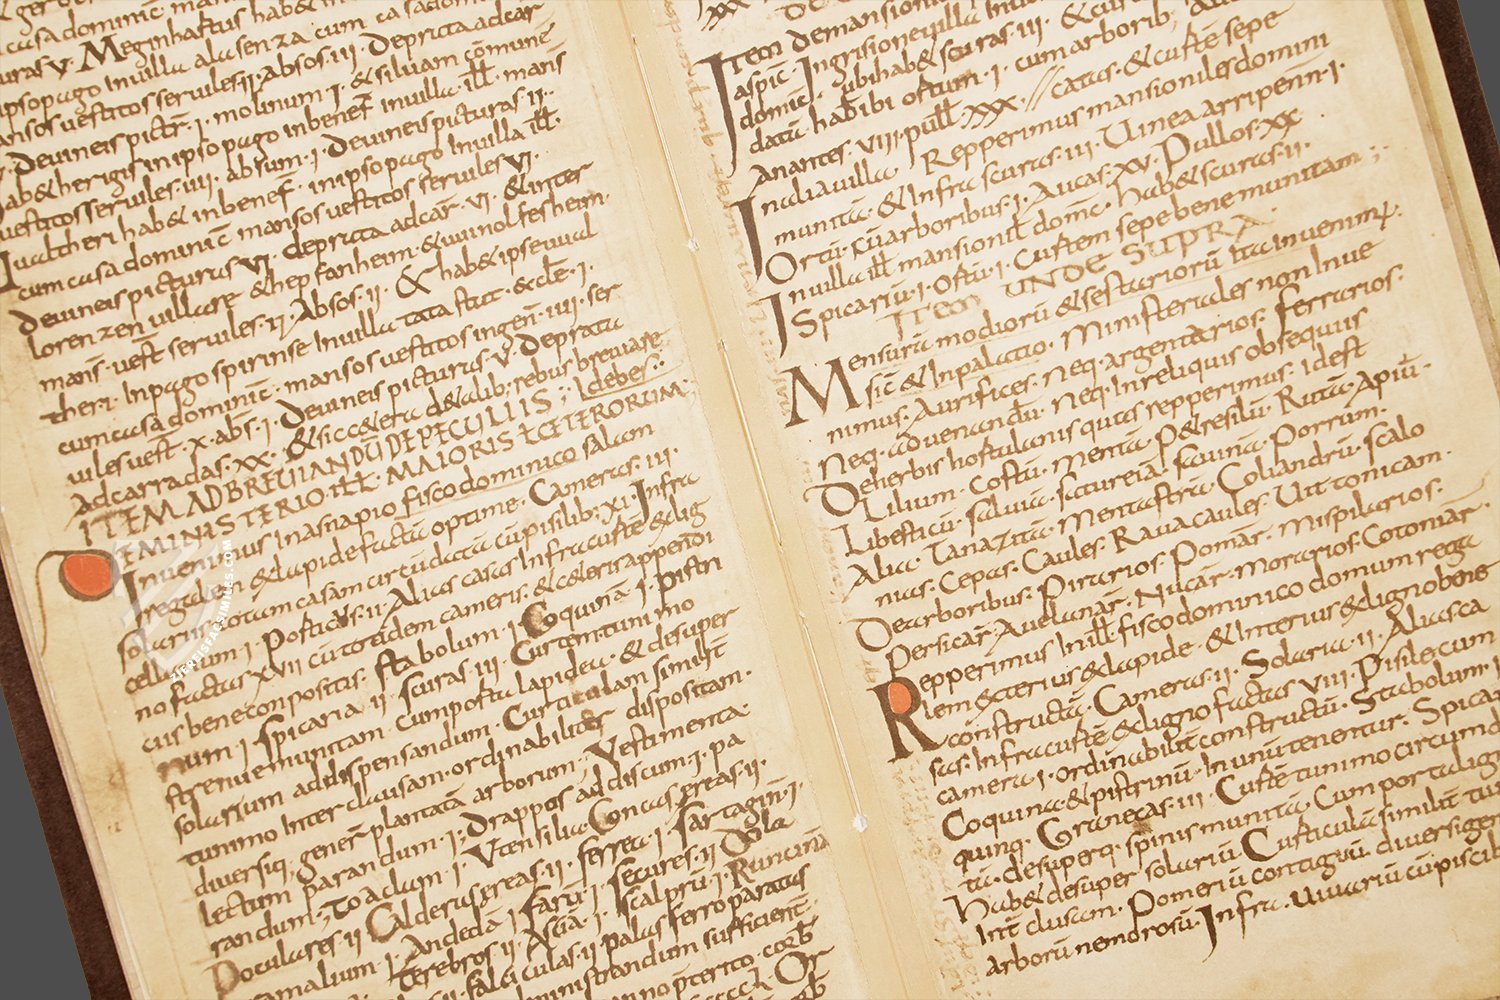 casa dominic̄
uras v. Meginhartus hab& in
ipso pago In uilla alasenza cum casa dom
ansos uestitos seruiles ii. absos. iii. De prata ad car
De uineis pictur̄. i. molinum. i. & siluam cōmunē
hab& herigis in ipso pago in benef̄ In uilla. ill̄. mans̄
uestitos seruiles. iiii. absum. i. De uineis picturas ii.
Iualtheri hab& in benef̄. in ipso pago In uilla ill̄.
cum casa dominic̄ mansos uestitos seruiles vi.
de uineis picturas vi. de prata ad car̄. vi. & inter
lorenzen uillare & hepfanheim. & uuinolfesheim.
mans̄. uest̄ seruiles. ii. Absos. ii. & hab& ipse uual
theri. In pago spirinse In uilla tatastat. & cl̄e. i.
cum casa dominic̄. mansos uestitos ingen̄. iiii. ser
uiles uest̄. x. abs̄. i. De uineis picturas. v. De prata
ad carradas. xx. & sic c&era d& alib; rebus breuiare
ITEM AD BREUIANDŪ DE PECULIIS; debes;
MINISTERIO. ILL̄. MAIORIS ł CETERORUM;
Inuenimus In asnapio fisco dominico salam
regalem & lapide factā optime. Cameras. iii.
solariis totam casam circūdatā cū pisilib; xi. Infra
cellarium. i. Porticus. ii. Alias casas Infra curtē & lig
no factas xvii cū totidem cameris. & c&eris appendī
ciis bene conpositis. stabolum. i. Coquinā. i. pistri
num. i. spicaria. ii. scuras. iii. Curtem tunimo
strenue munitam cum porta lapidea. & desuper
solarium ad dispensandum. Curticulam similit̄
tunimo Inter clausam. ordinabiliter dispositam.
diuersiq; gener̄ plantatā arborum. Vestimenta.
lectum parandum. i. Drappos ad discum. i. pa
randum. Toaclam. i. Vtensilia. Concas ęreas. ii.
Poculares. ii. Calderas ęreas. ii. ferrea. i. Sartagin̄. i.
ramalium. i. Andedā. i. farū. i. secures. ii. Dola
terebros. ii. Asciā. i. scalprū. i. Runcinā
falciculas. ii. palas ferro paratas
ministrandum sufficient̄.
Item de mansioni
aspic̄. Ingrisione uilla
domic̄. i. ubi hab& scuras. iii. & cur
datū hab ibi ortum. i. cum arborib;
Anantes. viii. pull̄. xxx. catus. & curtē sepe
In alia uilla Repperimus mansioniles domini
munitā. & Infra scuras. iii. Vinea arripenn̄. i.
Ortū. cū arboribus. i. Aucas. xv. Pullos. xx.
In uilla ill̄ mansionil̄ domc̄. hab& scuras. ii.
Spicariū. i. Ortū. i. Curtem sepe bene munitam;
ITEM UNDE SUPRA
Mensurā modiorū & sestariorū ita inuenim;
sic̄ & In palatio. Ministeriales non Inue
nimus. Aurifices. neq; argentarios. ferrarios.
Neq; ad uenandū. neq; In reliquis obsequiis
De herbis hortulanis quas repperimus. id est
Lilium. costū. mentā. P&resilū. Rutā. Apiū.
Libesticū. saluiā. satureiā. sauinā. Porrum.
Alia. Tanazitā. Mentastrū. Coliandrū. scalo
nias. Cepas. Caules. Rauacaules. Vittonicam.
De arboribus. Pirarios. Pomar̄. Mispilarios.
Persicar̄. Auelanar̄. Nucar̄. morarios. Cotoniar̄.
Repperimus In ill̄. fisco dominico domum rega
lem & terius & lapide. & Interius & ligno bene
constructā. Cameras. ii. Solaria. ii. Alias ca
sas. Infra curtē & ligno factas viii. Pisile cum
camera. i. ordinabilit̄ constructū. Stabolum. i
Coquina & pistrinū. In unū tenentur. Spicar
quinq; Graneas. iii. Curtē tunimo circumd
tā. desuperq; spinis munitā. Cum porta lign
hab& desuper solariū. Curticulā similit̄ tun
Int̄ clusam. Pomeriū contiguū. diuersi gen
arborū nemorosū. Infra. uiuariū cū piscib